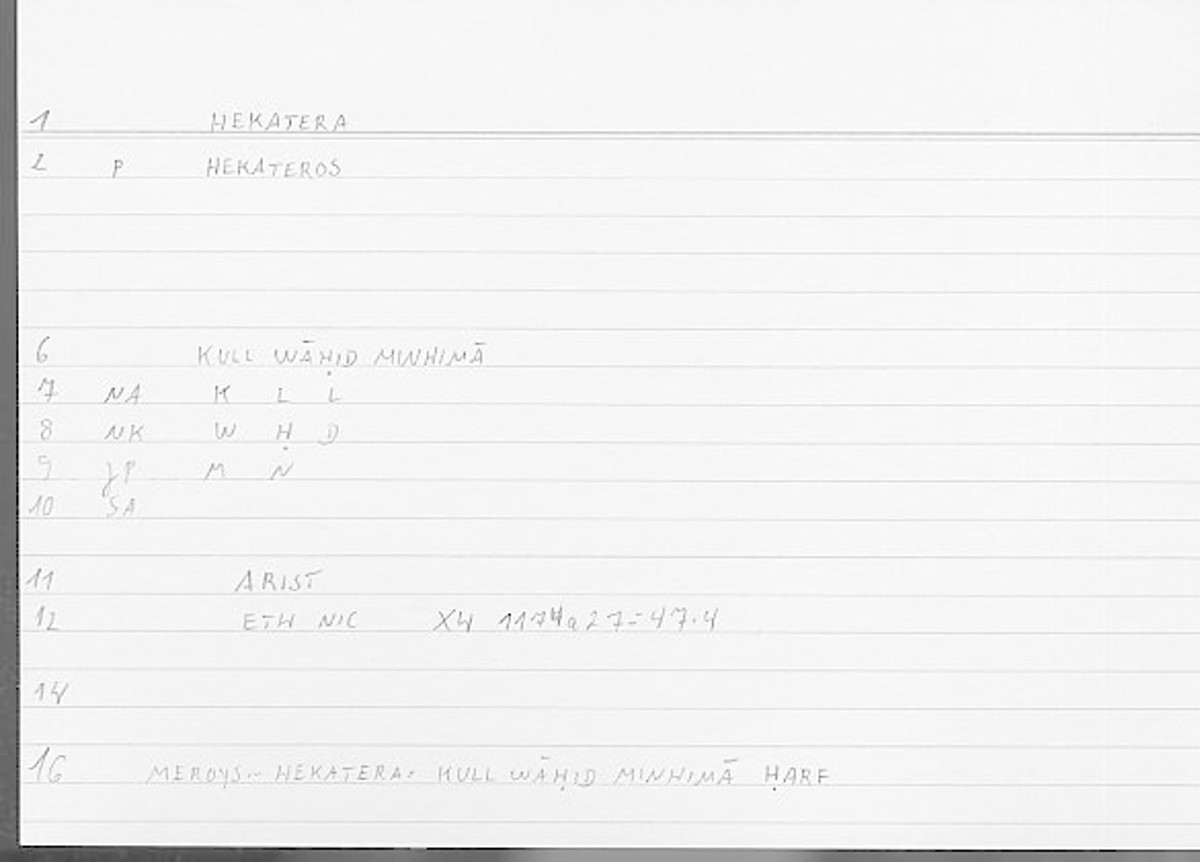 1 HEKATERA
2 P HEKATEROS
6 KULL WĀḤID MINHIMĀ
7 NA K L L
8 NK W Ḥ D
9 JP M N
10 SA
11 ARIST
12 ETH NIC X4 1174a27=47.4
14
16 MEROYS.. HEKATERA: KULL WĀḤID MINHIMĀ ḤARF